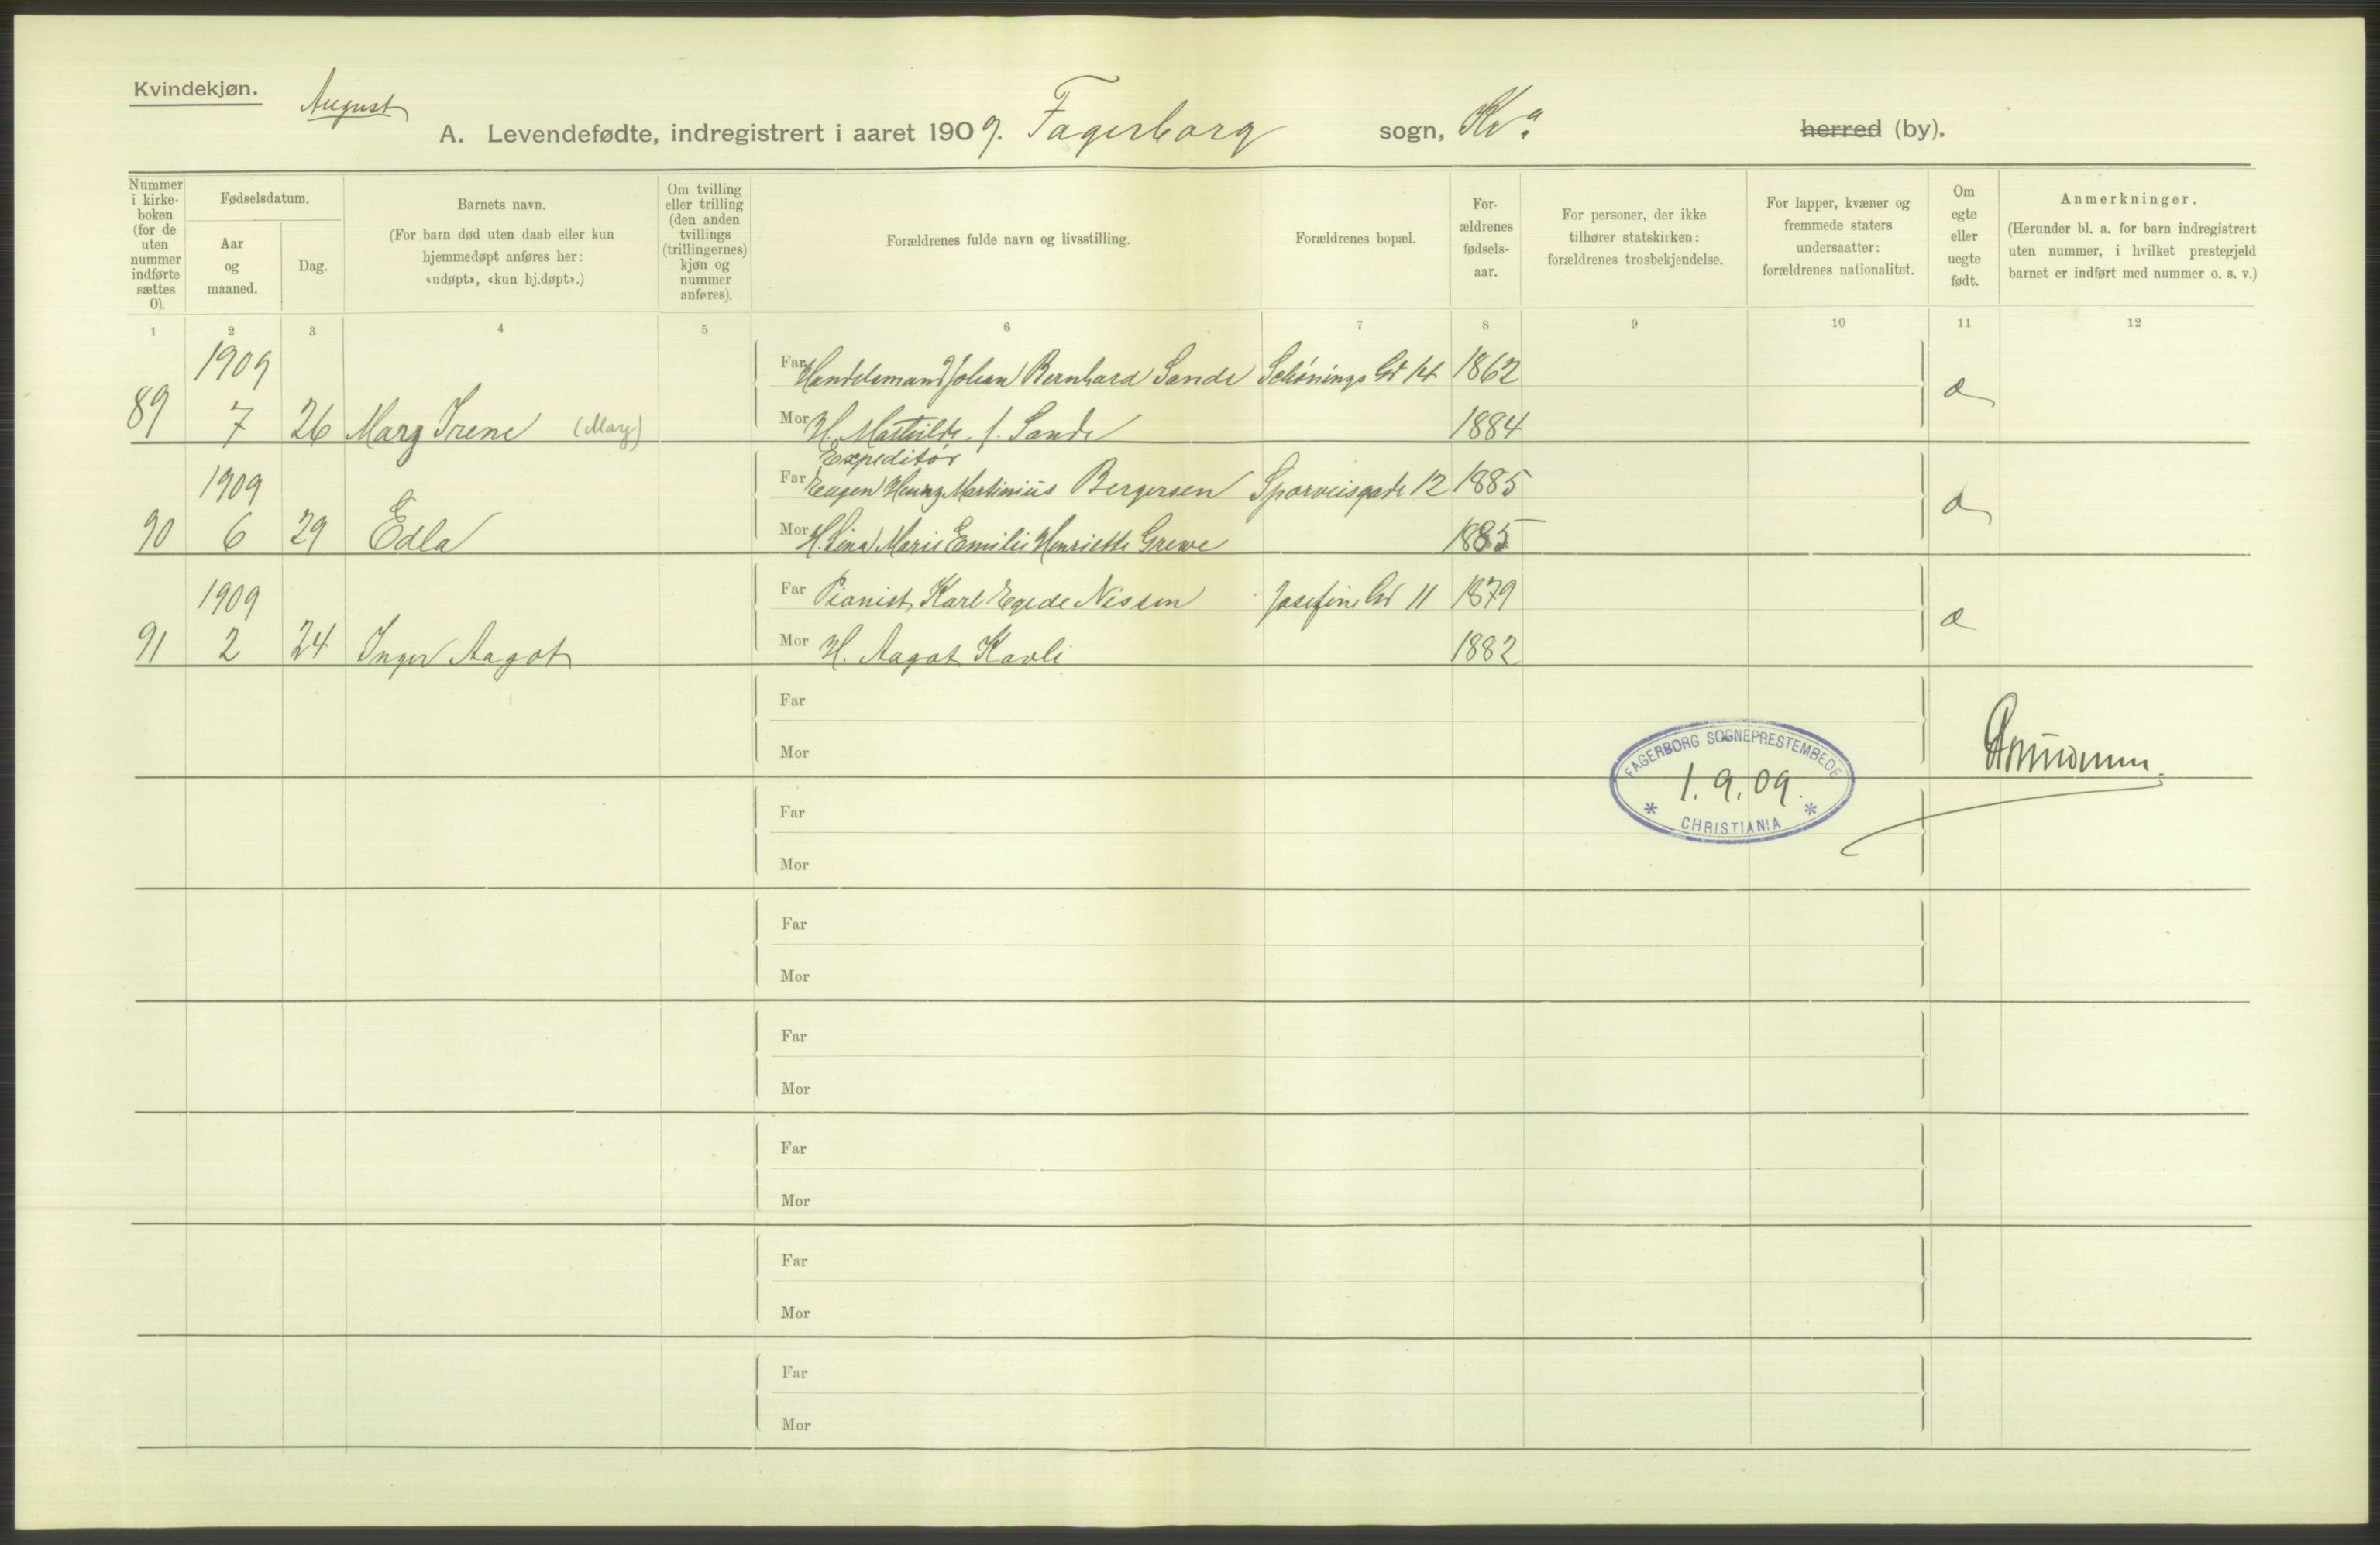 Kvindekjøn.
August
A. Levendefødte, indregistrert i aaret 1909. Fagerborg sogn, Kra herred (by).
Nummer i kirkeboken (for de uten nummer indførte sættes 0).
Fødselsdatum.
Aar og maaned.
Dag.
Barnets navn.
(For barn død uten daab eller kun hjemmedøpt anføres her: «udøpt», «kun hj.døpt».)
Om tvilling eller trilling (den anden tvillings (trillingernes) kjøn og nummer anføres).
Forældrenes fulde navn og livsstilling.
Forældrenes bopæl.
Forældrenes fødselsaar.
For personer, der ikke tilhører statskirken: forældrenes trosbekjendelse.
For lapper, kvæner og fremmede staters undersaatter: forældrenes nationalitet.
Om egte eller uegte født.
Anmerkninger.
(Herunder bl. a. for barn indregistrert uten nummer, i hvilket prestegjeld barnet er indført med nummer o. s. v.)
1 2 3 4 5 6 7 8 9 10 11 12
1909
Far Handelsmand Johan Bernhard Sande Schønings Gd 14 1862
89 7 26 Mary Irene (Mary) Mor H. Mathilde f. Sande 1884
Expeditør
1909 Far Eugen Henry Martinius Bergersen Sporveisgade 12 1885
90 6 29 Edla Mor H. Lina Marie Emilie Henriette Grewe 1885
1909 Far Pianist Karl Egede Nissen Josefine Gd 11 1879
91 2 24 Inger Aagot Mor H. Aagot Kavli 1882
Far
Mor
FAGERBORG SOGNEPRESTEMBEDE
1.9.09.
CHRISTIANIA
Far
Mor
Far
Mor
Far
Mor
Far
Mor
Far
Mor
Far
Mor